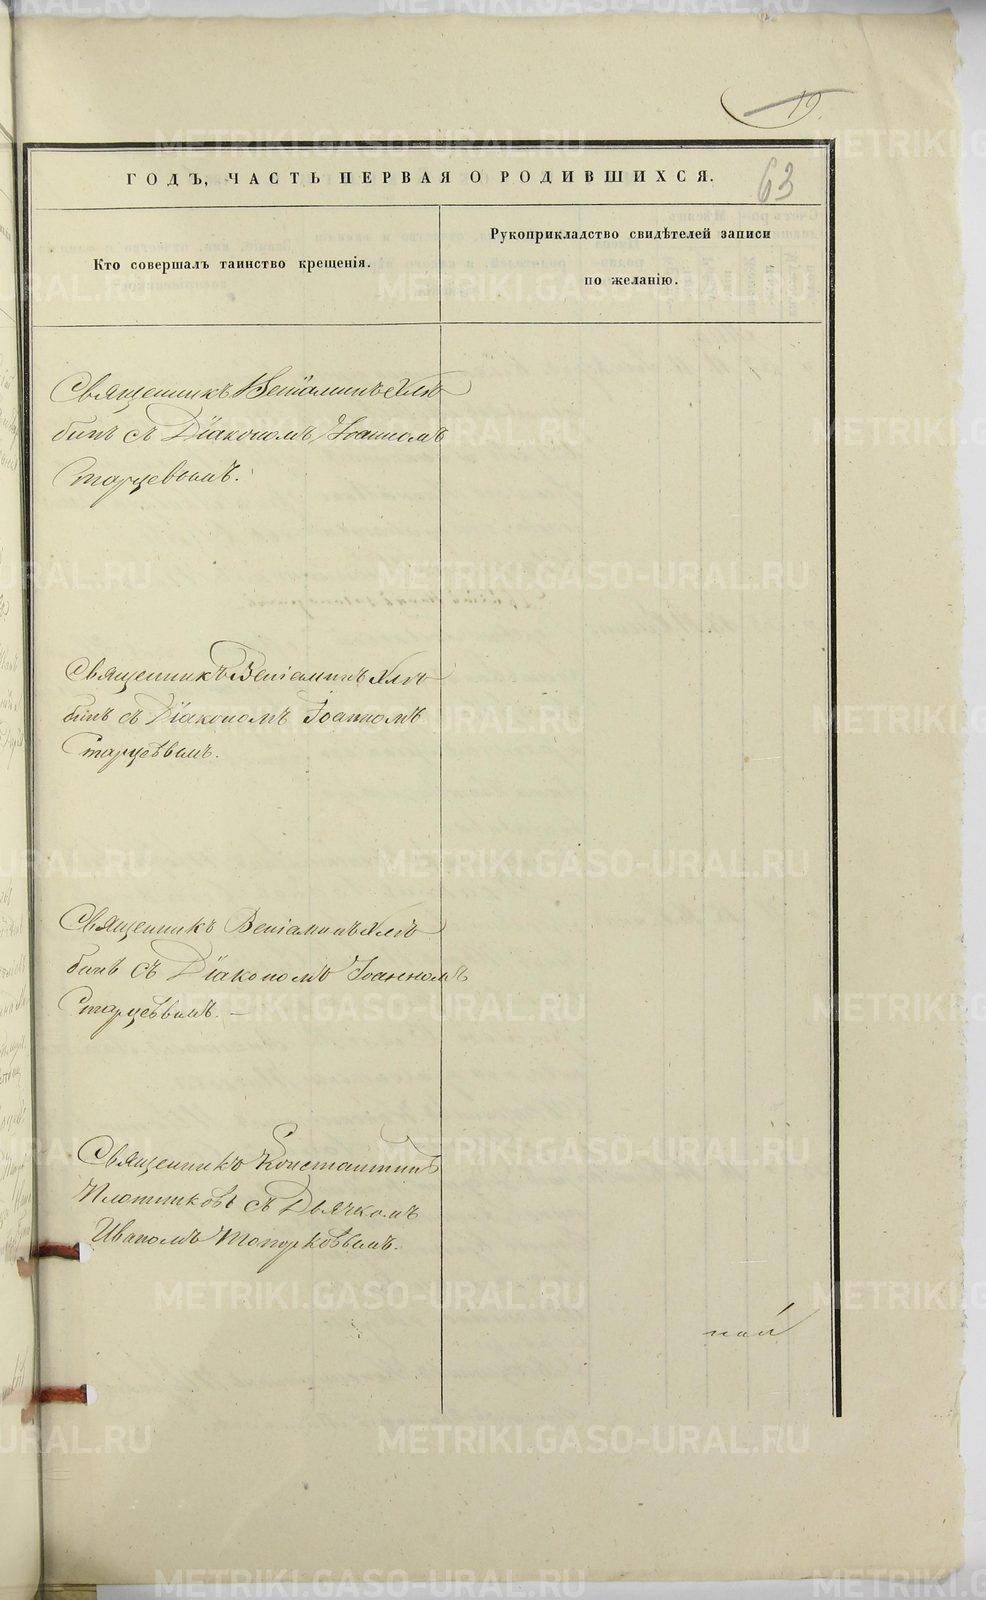 19.
63
ГОДЪ, ЧАСТЬ ПЕРВАЯ О РОДИВШИХСЯ.
Кто совершалъ таинство крещенія.
Рукоприкладство свидѣтелей записи
по желанію.
Священникъ Веніаминъ Хлѣ
бинъ съ Діакономъ Іоанномъ
Старцевымъ.
Священникъ Веніаминъ Хлѣ
бинъ съ Діакономъ Іоанномъ
Старцевымъ.
Священникъ Веніаминъ Хлѣ
бинъ съ Діакономъ Іоанномъ
Старцевымъ. —
Священникъ Константинъ
Плотниковъ съ Дьячкомъ
Иваномъ Топорковымъ.
METRIKI.GASO-URAL.RU